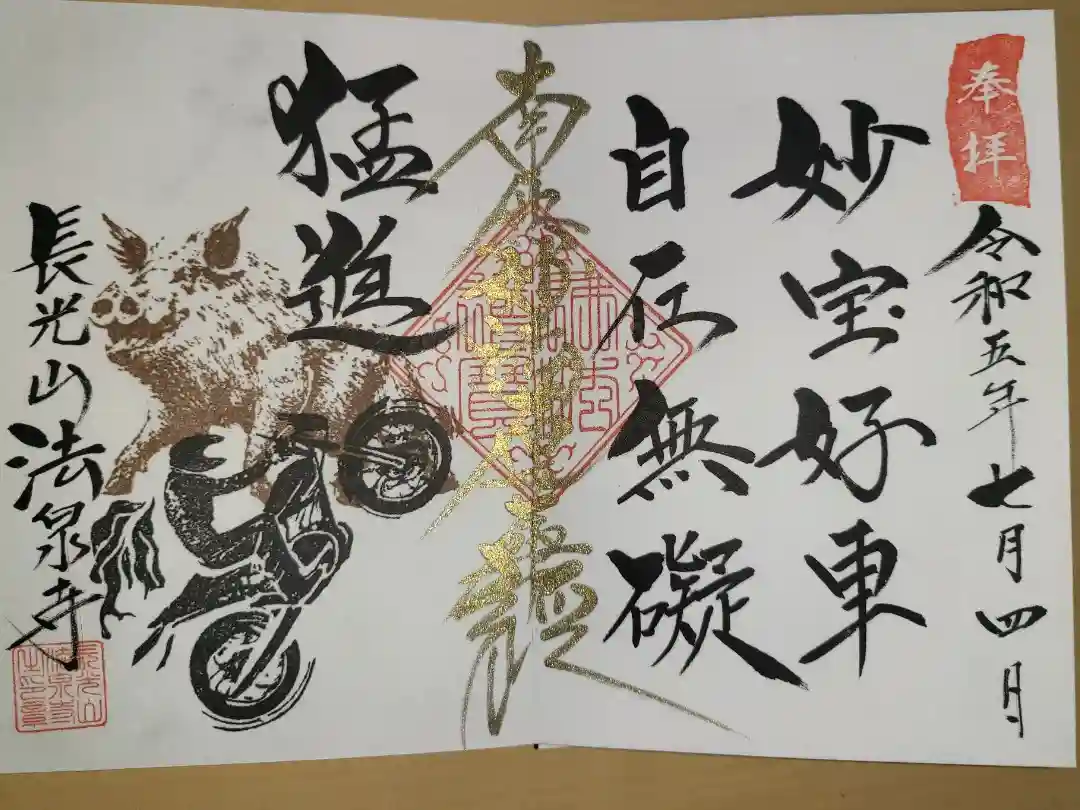 奉拝
令和五年七月四日
妙宝好車
自在無礙
南無妙法蓮華経
猛進
長光山法泉寺